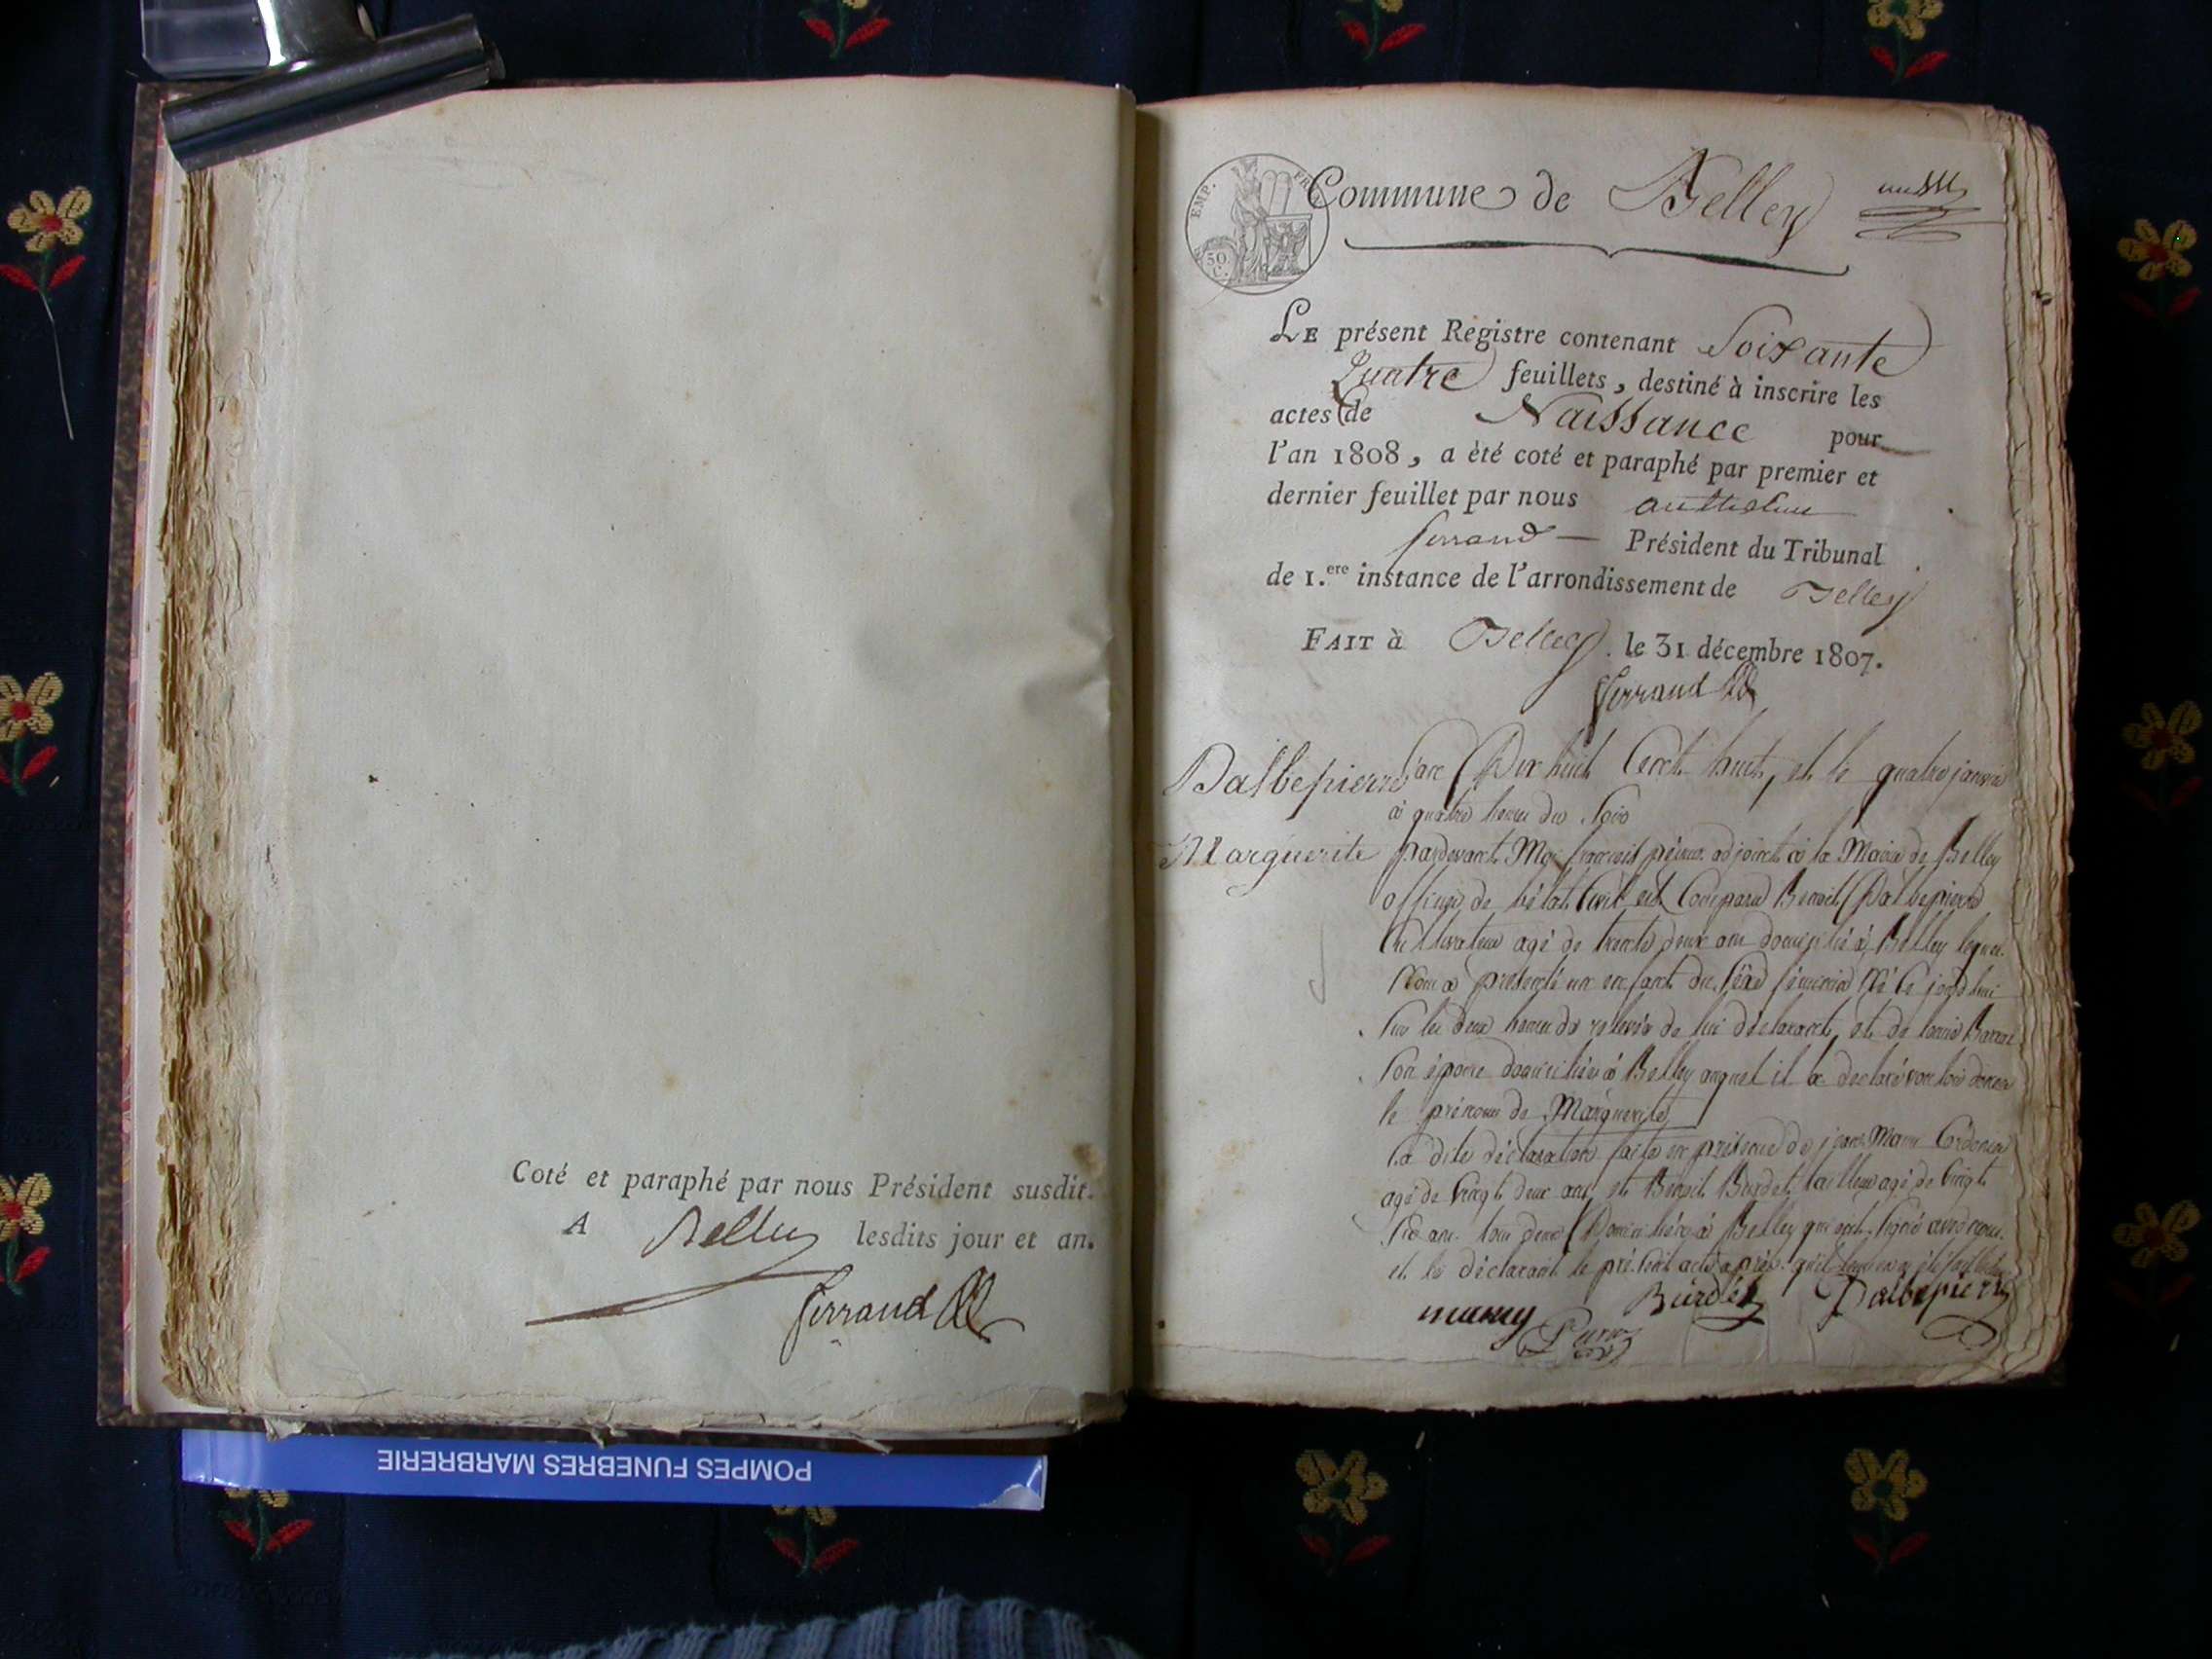 Coté et paraphé par nous Président susdit.
A Belley lesdits jour et an.
Ferrand
POMPES FUNEBRES MARBRERIE
EMP. FR
50
C.
Commune de Belley
LE présent Registre contenant Soixante
Quatre feuillets, destiné à inscrire les
actes de Naissance pour
l'an 1808, a èté coté et paraphé par premier et
dernier feuillet par nous anthelme
ferrand — Président du Tribunal
de 1.ere instance de l'arrondissement de Belley
FAIT à Belley. le 31 décembre 1807.
Ferrand
Dalbepierre
Marguerite
L'an Dix huit Cent huit, et le quatre janvier
à quatre heures du Soir
pardevant Moi françois adjoint à la Mairie de Belley
officier de l'état Civil est Comparu Benoit Dalbepierre
Cultivateur agé de trente deux ans domicilié à Belley lequel
Nous a presenté un enfant du Sexe féminin Né Ce jourd'hui
Sur les deux heures de relevée de lui déclarant, et de
Son épouse domiciliée à Belley auquel il a declaré vouloir donner
le prénom de Marguerite
La dite déclaration faite en présence de jean Marie
agé de Vingt deux ans et Benoit Burdet tailleur agé de Vingt
Six ans tous deux Domiciliés à Belley qui ont Signé avec nous
et le déclarant le présent acte après
Burdet Dalbepierre